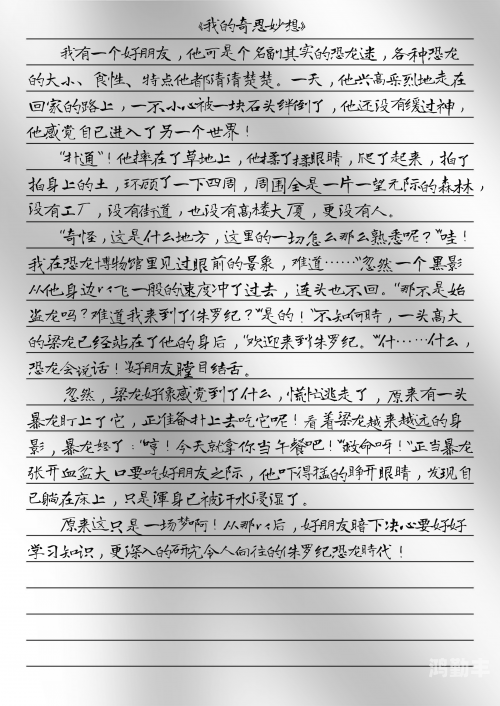 《我的奇思妙想》
我有一个好朋友，他可是个名副其实的恐龙迷，各种恐龙
的大小、食性、特点他都清清楚楚。一天，他兴高采烈地走在
回家的路上，一不小心被一块石头绊倒了，他还没有缓过神，
他感觉自己进入了另一个世界！
“扑通”！他摔在了草地上，他揉了揉眼睛，爬了起来，拍了
拍身上的土，环顾了一下四周，周围全是一片一望无际的森林，
没有工厂，没有街道，也没有高楼大厦，更没有人。
“奇怪，这是什么地方，这里的一切怎么那么熟悉呢？”哇！
我在恐龙博物馆里见过眼前的景象，难道……“忽然一个黑影
从他身边以飞一般的速度冲了过去，连头也不回。“那不是始
盗龙吗？难道我来到了侏罗纪？”是的！“不知何时，一头高大
的梁龙已经站在了他的身后，“欢迎来到侏罗纪。“什……什么，
恐龙会说话！”好朋友瞠目结舌。
忽然，梁龙好像感觉到了什么，慌忙逃走了，原来有一头
暴龙盯上了它，正准备扑上去吃它呢！看着梁龙越来越远的身
影，暴龙怒了：“哼！今天就拿你当午餐吧！”“救命呀！”正当暴龙
张开血盆大口要吃好朋友之际，他吓得猛的睁开眼睛，发现自
己躺在床上，只是浑身已被汗水浸湿了。
原来这只是一场梦啊！从那以后，好朋友暗下决心要好好
学习知识，更深入的研究令人向往的侏罗纪恐龙时代！
鸿勤年